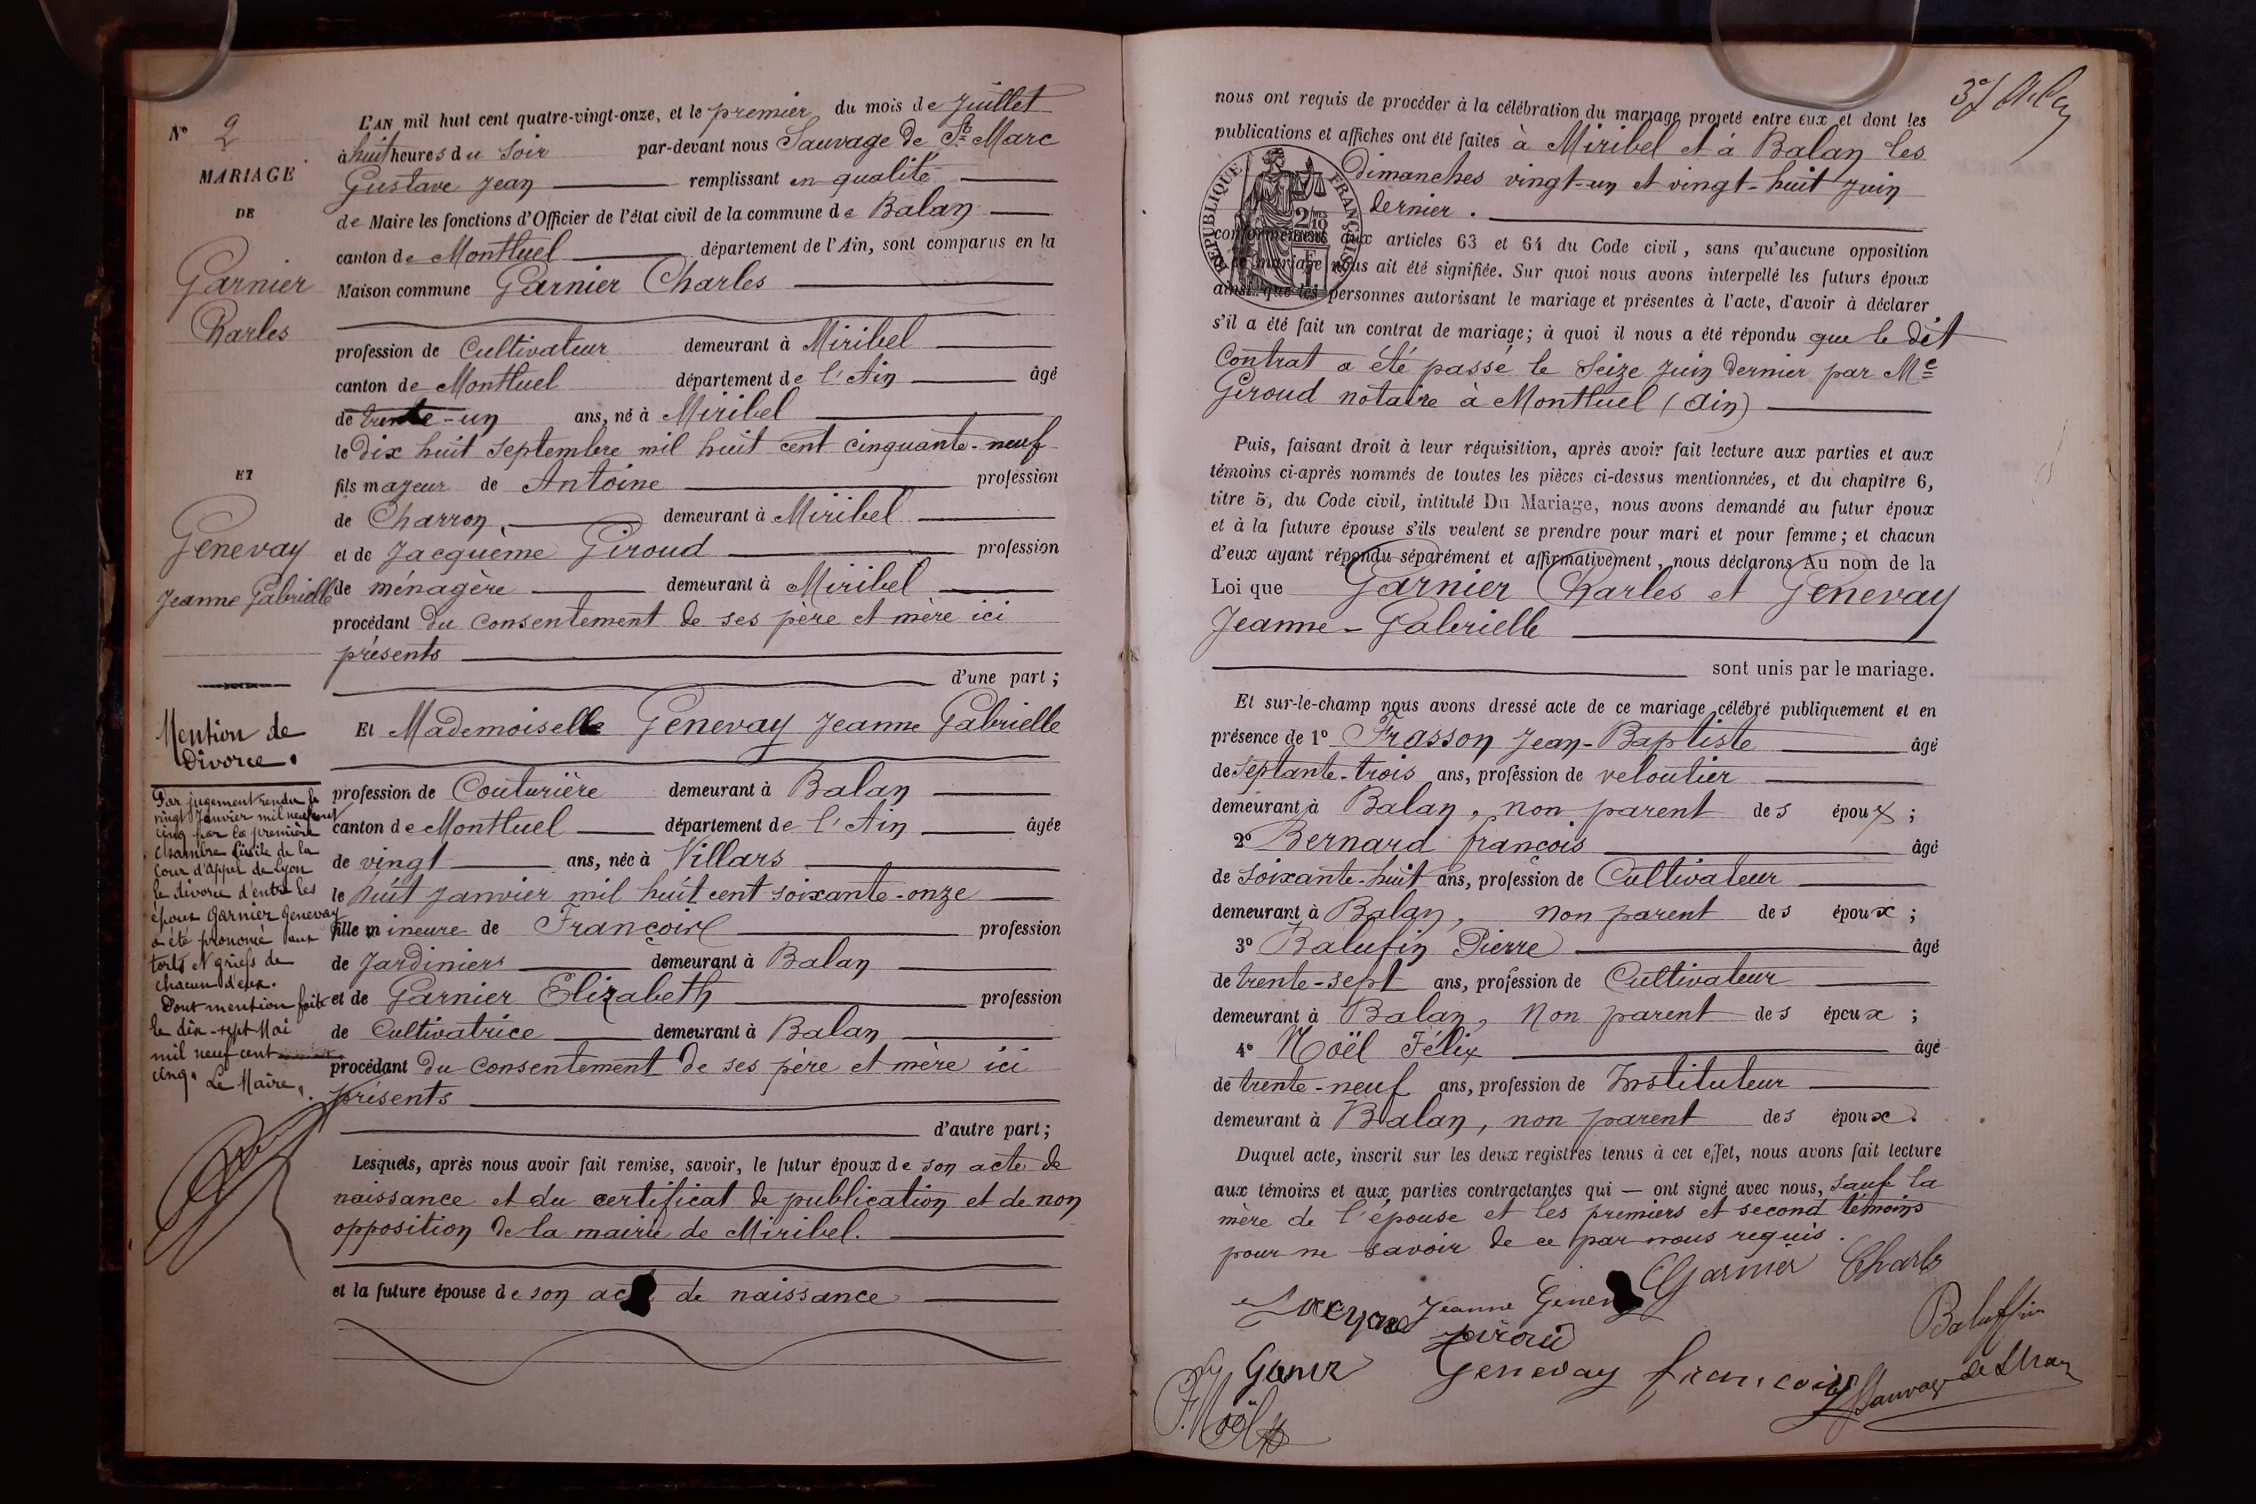 N° 2
MARIAGE
DE
Garnier
Charles
ET
Genevay
Jeanne Gabrielle
Mention de
Divorce.
Par jugement rendu le
vingt Janvier mil neuf cent
cinq par la première
chambre civile de la
Cour d'Appel de Lyon
le divorce d'entre les
époux Garnier Genevay
a été prononcé aux
torts et griefs de
chacun d'eux.
Dont mention faite
le dix-sept Mai
mil neuf cent
cinq. Le Maire,
L'AN mil huit cent quatre-vingt-onze, et le premier du mois de Juillet
à huit heures du soir par-devant nous Sauvage de St Marc
Gustave Jean remplissant en qualité
de Maire les fonctions d'Officier de l'état civil de la commune de Balan
canton de Montluel département de l'Ain, sont comparus en la
Maison commune Garnier Charles
profession de Cultivateur demeurant à Miribel
canton de Montluel département de l'Ain âgé
de trente-un ans, né à Miribel
le dix huit Septembre mil huit cent cinquante-neuf
fils majeur de Antoine profession
de Charron, demeurant à Miribel
et de Jacquème Giroud profession
de ménagère demeurant à Miribel
procédant du consentement de ses père et mère ici
présents
d'une part ;
Et Mademoiselle Genevay Jeanne Gabrielle
profession de Couturière demeurant à Balan
canton de Montluel département de l'Ain âgée
de vingt ans, née à Villars
le huit Janvier mil huit cent soixante-onze
fille mineure de François profession
de Jardiniers demeurant à Balan
et de Garnier Elizabeth profession
de Cultivatrice demeurant à Balan
procédant du consentement de ses père et mère ici
présents
d'autre part ;
Lesquels, après nous avoir fait remise, savoir, le futur époux de son acte de
naissance et du certificat de publication et de non
opposition de la mairie de Miribel.
et la future épouse de son acte de naissance
nous ont requis de procéder à la célébration du mariage projeté entre eux et dont les
publications et affiches ont été faites à Miribel et à Balan les
dimanches vingt-un et vingt-huit Juin
dernier.
REPUBLIQUE FRANÇAISE
2/10
conformément aux articles 63 et 64 du Code civil, sans qu'aucune opposition
à ce mariage nous ait été signifiée. Sur quoi nous avons interpellé les futurs époux
ainsi que les personnes autorisant le mariage et présentes à l'acte, d'avoir à déclarer
s'il a été fait un contrat de mariage ; à quoi il nous a été répondu que le dit
Contrat a été passé le Seize Juin dernier par Me
Giroud notaire à Montluel (Ain)
Puis, faisant droit à leur réquisition, après avoir fait lecture aux parties et aux
témoins ci-après nommés de toutes les pièces ci-dessus mentionnées, et du chapitre 6,
titre 5, du Code civil, intitulé Du Mariage, nous avons demandé au futur époux
et à la future épouse s'ils veulent se prendre pour mari et pour femme ; et chacun
d'eux ayant répondu séparément et affirmativement, nous déclarons Au nom de la
Loi que Garnier Charles et Genevay
Jeanne-Gabrielle
sont unis par le mariage.
Et sur-le-champ nous avons dressé acte de ce mariage célébré publiquement et en
présence de 1° Frasson Jean-Baptiste âgé
de septante-trois ans, profession de veloutier
demeurant à Balan, non parent des époux ;
2° Bernard François âgé
de soixante-huit ans, profession de Cultivateur
demeurant à Balan, non parent des époux ;
3° Balufin Pierre âgé
de trente-sept ans, profession de Cultivateur
demeurant à Balan, Non parent des époux ;
4° Noël Félix âgé
de trente-neuf ans, profession de Instituteur
demeurant à Balan, non parent des époux.
Duquel acte, inscrit sur les deux registres tenus à cet effet, nous avons fait lecture
aux témoins et aux parties contractantes qui — ont signé avec nous, sauf la
mère de l'épouse et les premiers et second témoins
pour ne savoir de ce par nous requis.
Garnier Charles
Jeanne Genev
Baluffin
Genevay François
Sauvage de St Marc
F. Noël